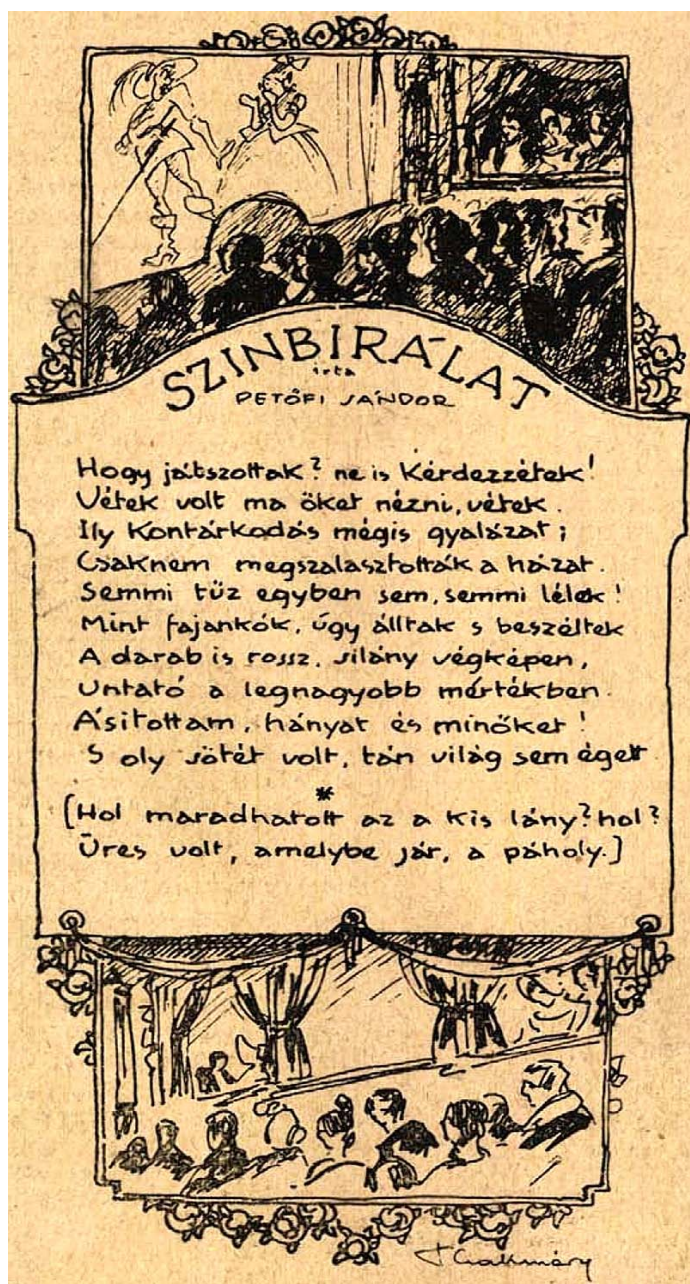 SZINBIRÁLAT
írta
PETŐFI SÁNDOR
Hogy játszottak? ne is Kérdezzétek!
Vétek volt ma őket nézni, vétek.
Ily Kontárkodás mégis gyalázat;
Csaknem megszalasztották a házat.
Semmi tűz egyben sem, semmi lélek!
Mint fajankók, úgy álltak s beszéltek
A darab is rossz, silány végképen,
Untató a legnagyobb mértékben.
Ásítottam, hányat és minőket!
S oly sötét volt, tán világ sem égett
*
[Hol maradhatott az a kis lány? hol?
Üres volt, amelybe jár, a páholy.]